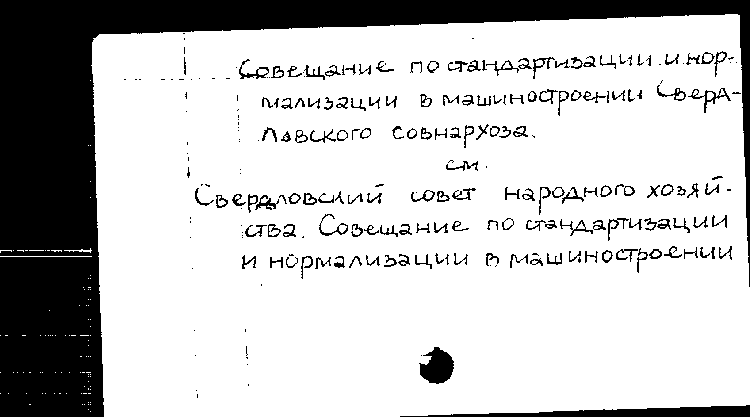 Совещание по стандартизации и нор-
мализации в машиностроении Сверд-
ловского совнархоза.
см.
Свердловский совет народного хозяй-
ства. Совещание по стандартизации
и нормализации в машиностроении